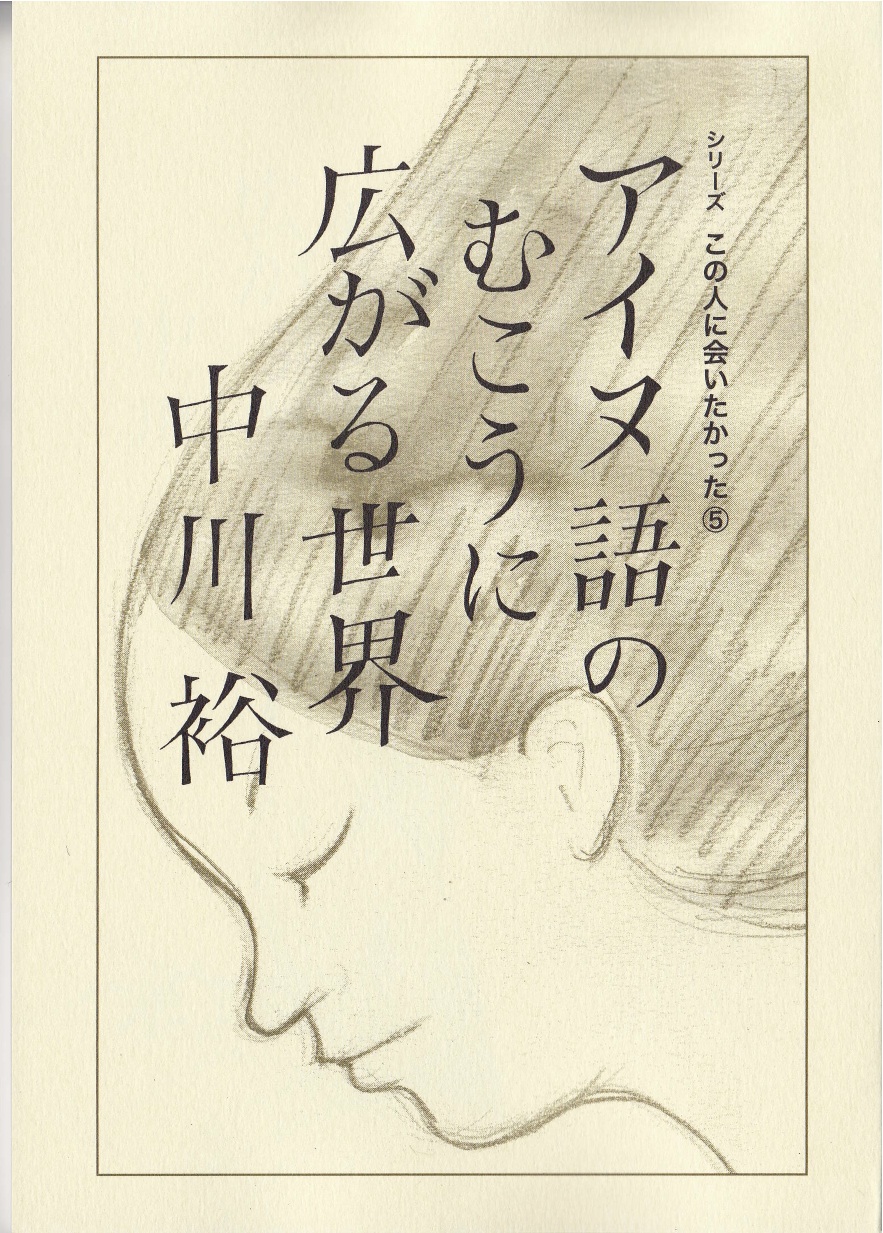 シリーズ この人に会いたかった⑤
アイヌ語の
むこうに
広がる世界
中川 裕